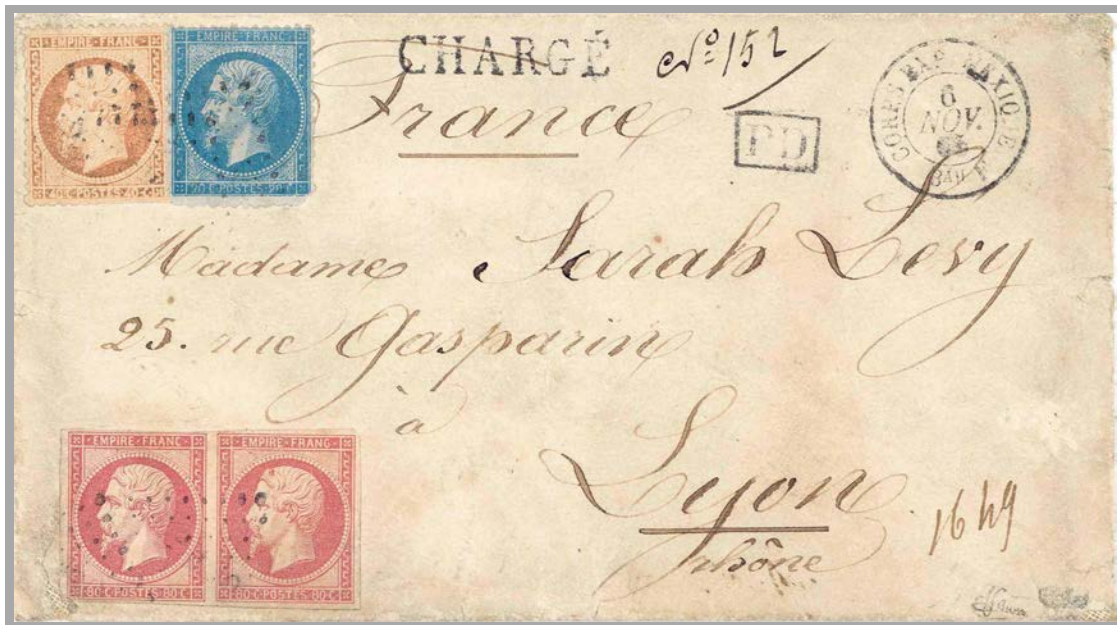 EMPIRE · FRANC ·
40 · C · POSTES · 40 · C
EMPIRE · FRANC
20 · C · POSTES · 20 · C
CHARGÉ
No 152
France
PD
CORRS EXP MEXIQUE
6
NOV.
Madame Sarah Levy
25. rue Gasparin
à
Lyon
rhône
1649
EMPIRE · FRANC ·
80 · C · POSTES · 80 · C
EMPIRE · FRANC ·
80 · C · POSTES · 80 · C